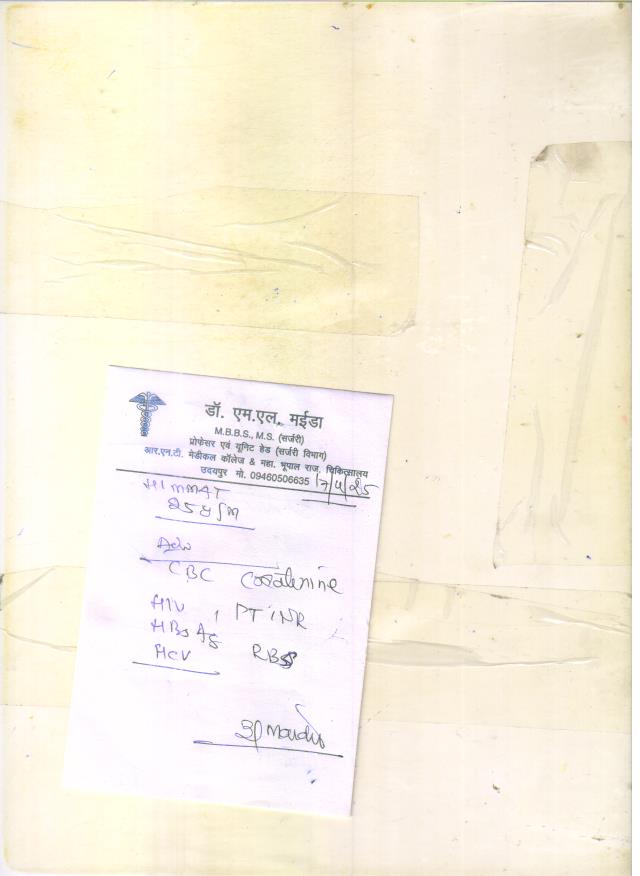 डॉ. एम.एल. मईडा
M.B.B.S., M.S. (सर्जरी)
प्रोफेसर एवं यूनिट हेड (सर्जरी विभाग)
आर.एन.टी. मेडीकल कॉलेज & महा. भूपाल राज. चिकित्सालय
उदयपुर मो. 09460506635
HIMMAT
Adv
CBC
HIV , PT INR
HBsAg
HCV RBS